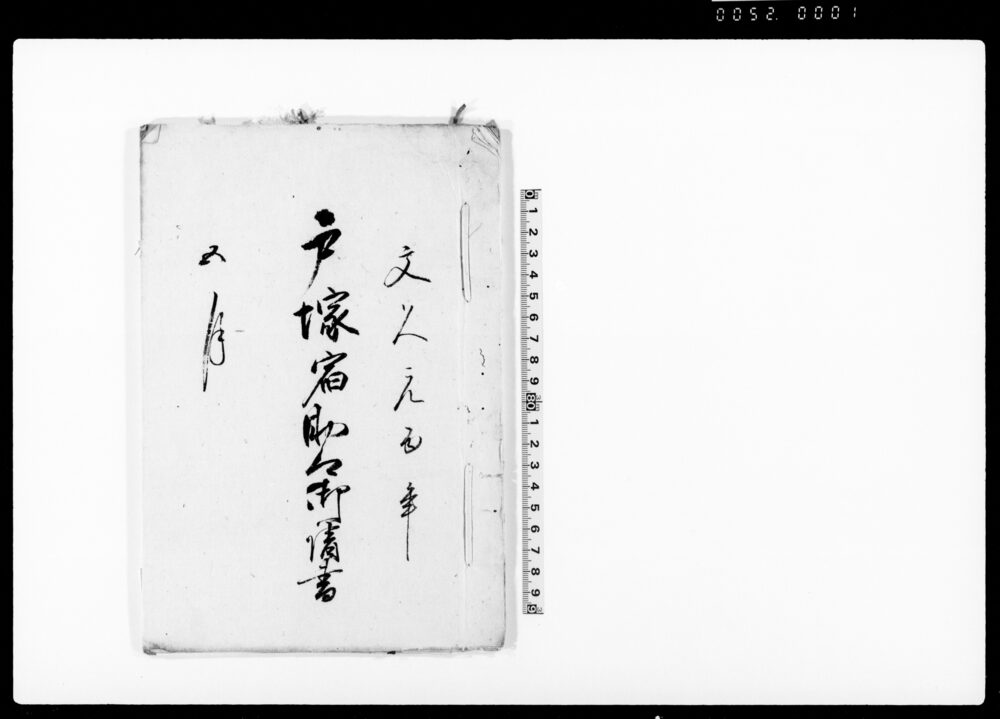 0052. 0001
文久元酉年
戸塚宿助郷御請書
五月
0 1 2 3 4 5 6 7 8 9
1 2 3 4 5 6 7 8 9